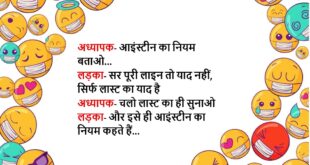 अध्यापक- आइंस्टीन का नियम
बताओ...
लड़का- सर पूरी लाइन तो याद नहीं,
सिर्फ लास्ट का याद है
अध्यापक- चलो लास्ट का ही सुनाओ
लड़का- और इसे ही आइंस्टीन का
नियम कहते हैं...